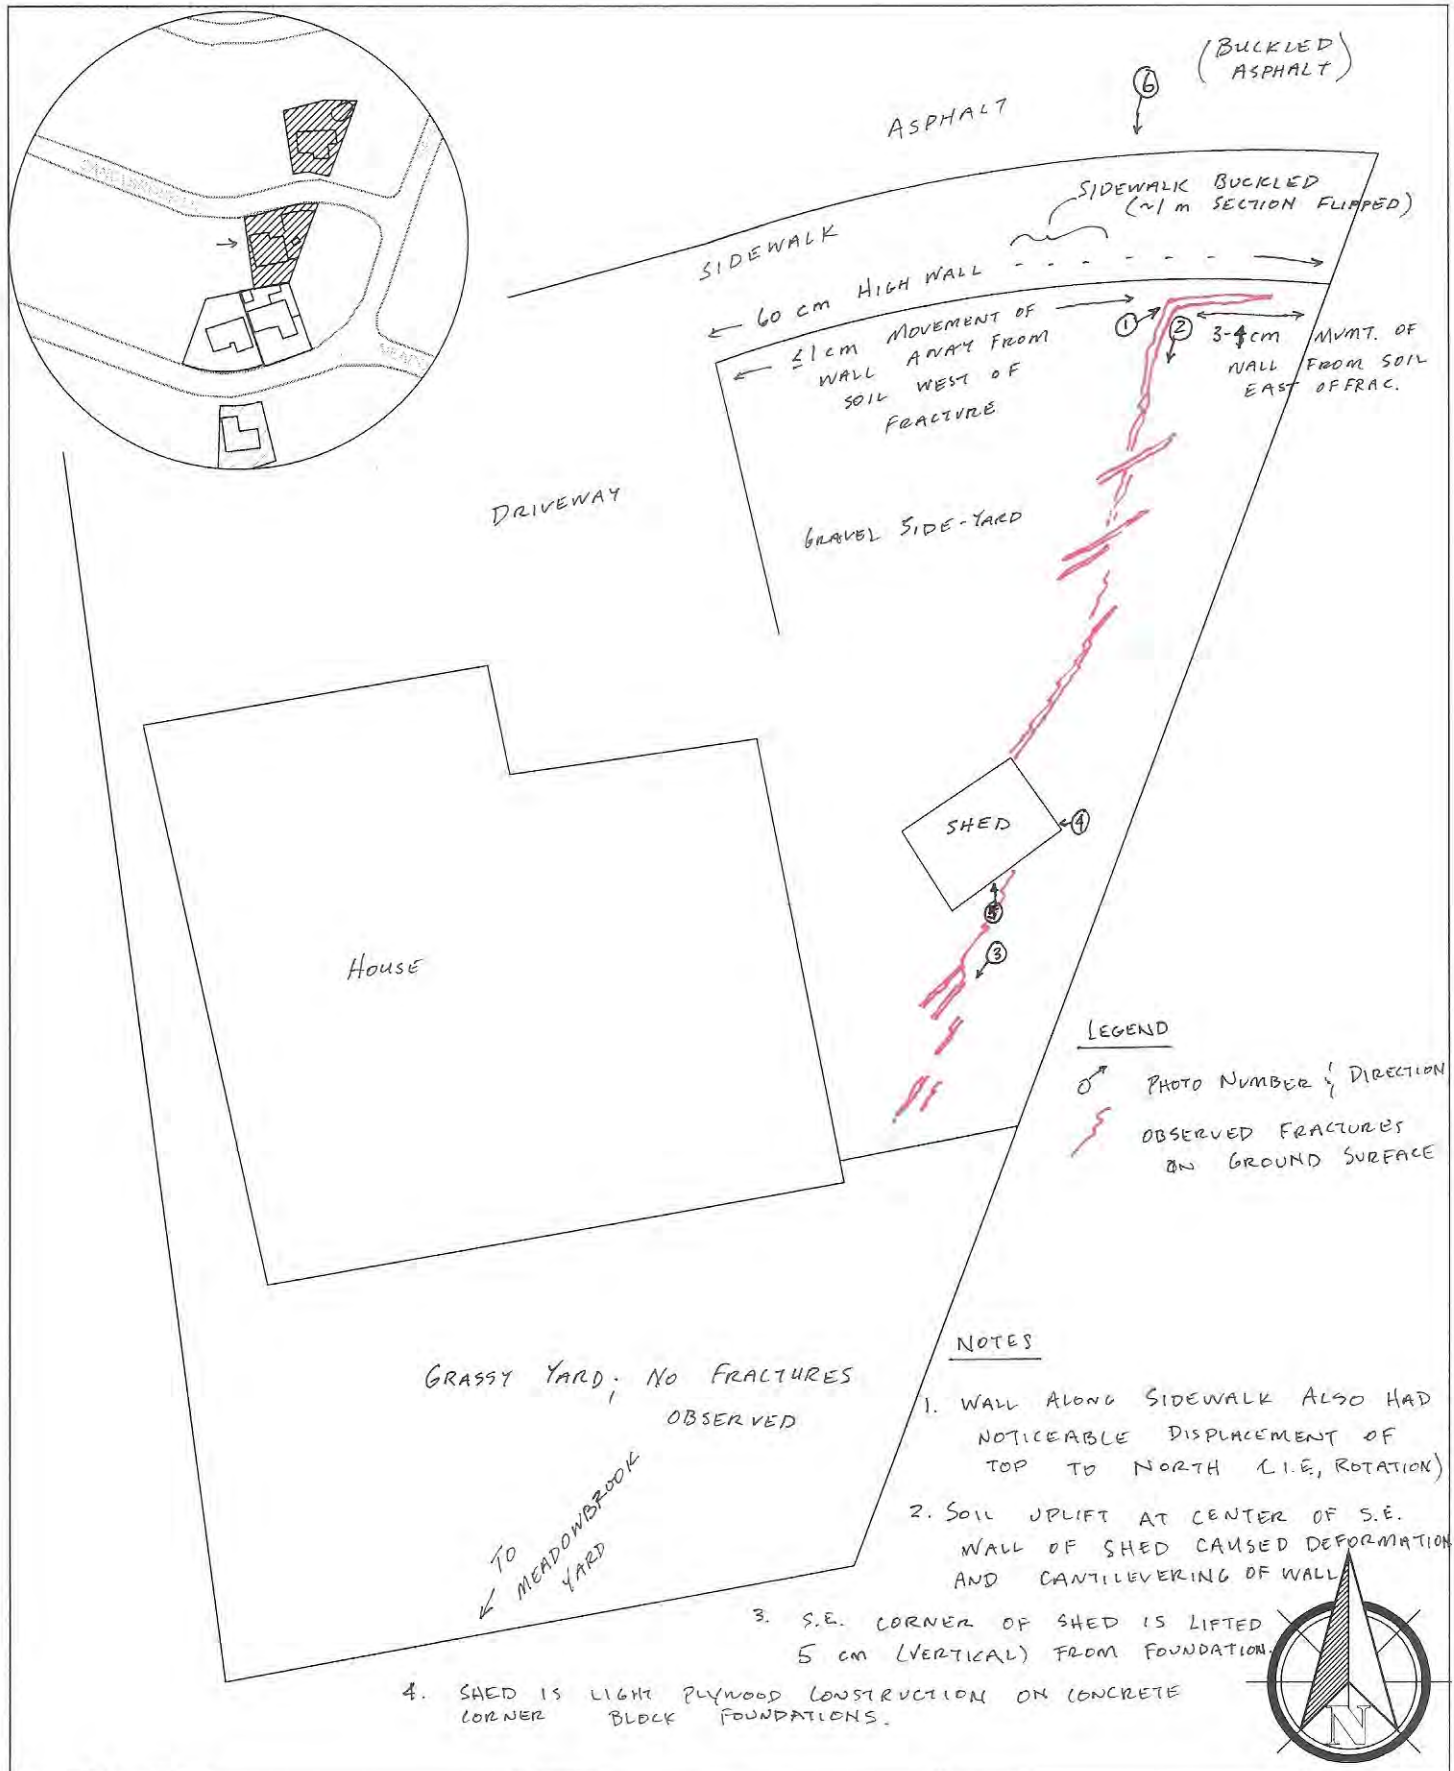 (BUCKLED
ASPHALT)
6
ASPHALT
SIDEWALK BUCKLED
(~1 m SECTION FLIPPED)
SIDEWALK
60 cm HIGH WALL
≤1 cm MOVEMENT OF
WALL AWAY FROM
SOIL WEST OF
FRACTURE
1
2
3-4 cm MVMT. OF
WALL FROM SOIL
EAST OF FRAC.
DRIVEWAY
GRAVEL SIDE-YARD
SHED
4
5
3
HOUSE
LEGEND
PHOTO NUMBER & DIRECTION
OBSERVED FRACTURES
ON GROUND SURFACE
GRASSY YARD; NO FRACTURES
OBSERVED
TO
MEADOWBROOK
YARD
NOTES
1. WALL ALONG SIDEWALK ALSO HAD
NOTICEABLE DISPLACEMENT OF
TOP TO NORTH (I.E, ROTATION)
2. SOIL UPLIFT AT CENTER OF S.E.
WALL OF SHED CAUSED DEFORMATION
AND CANTILEVERING OF WALL
3. S.E. CORNER OF SHED IS LIFTED
5 cm (VERTICAL) FROM FOUNDATION.
4. SHED IS LIGHT PLYWOOD CONSTRUCTION ON CONCRETE
CORNER BLOCK FOUNDATIONS.
N